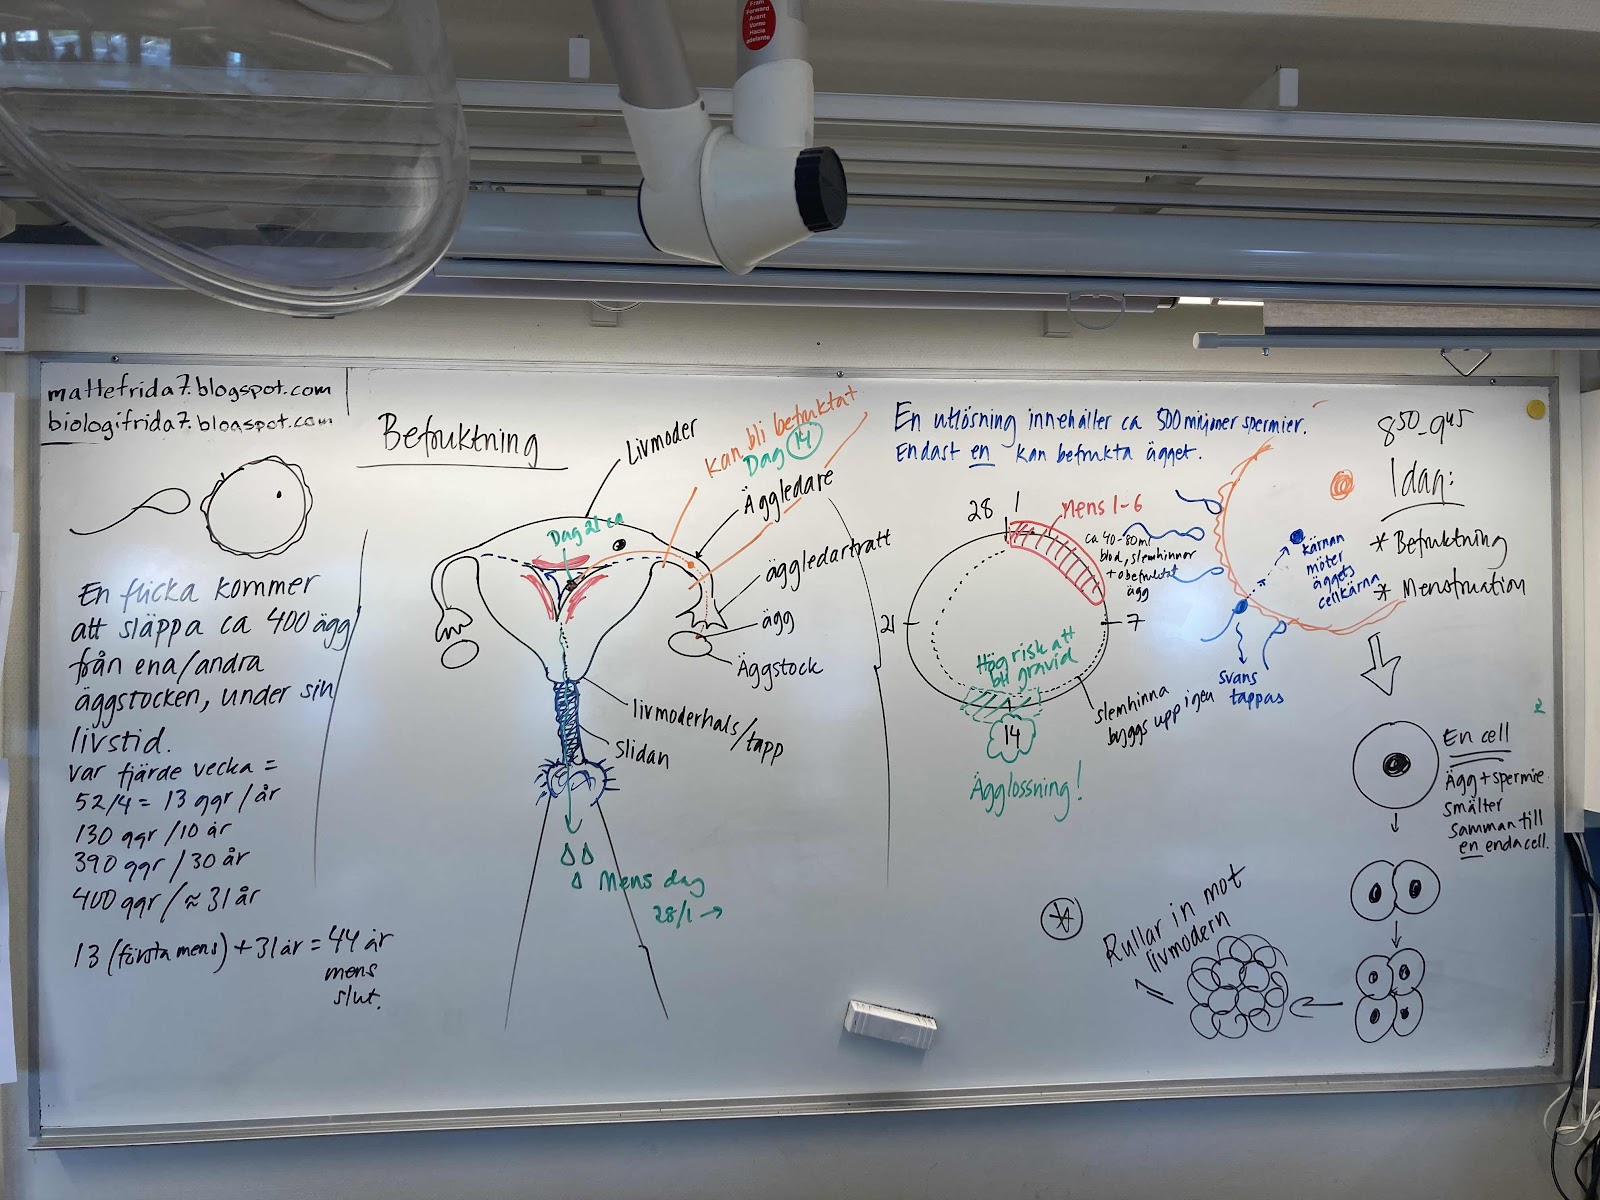 Fram
Forward
Avant
Vorne
Hacia
adelante
mattefrida7.blogspot.com
biologifrida7.blogspot.com
Befruktning
En flicka kommer
att släppa ca 400 ägg
från ena/andra
äggstocken, under sin
livstid.
var fjärde vecka =
52/4 = 13 ggr/år
130 ggr/10 år
390 ggr/30 år
400 ggr/≈31 år
13 (första mens) + 31 år = 44 år
mens
slut.
Livmoder
kan bli befruktat
Dag 14
Äggledare
Dag 21 ca
äggledartratt
ägg
Äggstock
livmoderhals/tapp
Slidan
Mens dag
28/1 →
En utlösning innehåller ca 500 miljoner spermier.
Endast en kan befrukta ägget.
28 1
Mens 1-6
ca 40-80 ml
blod, slemhinnor
+ obefruktat
ägg
21
7
Hög risk att
bli gravid
14
Ägglossning!
slemhinna
byggs upp igen
kärnan
möter
äggets
cellkärna
svans
tappas
8⁵⁰-9⁴⁵
Idag:
* Befruktning
* Menstruation
2
En cell
Ägg + spermie
smälter
samman till
en enda cell.
Rullar in mot
livmodern